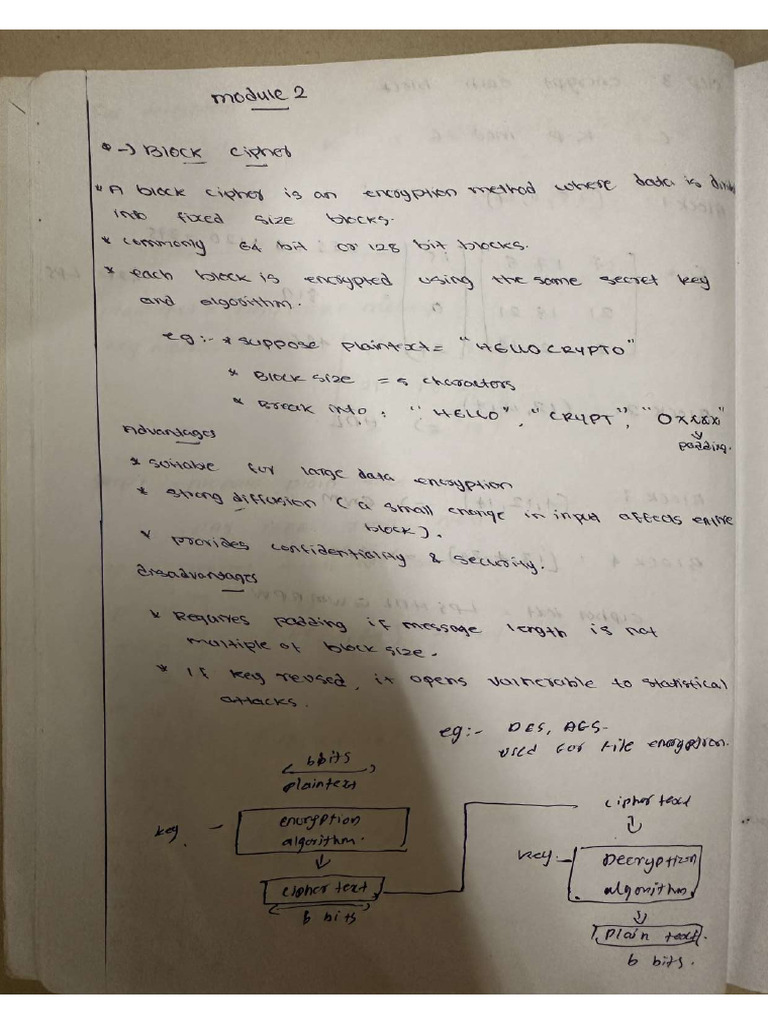 Module 2
* → Block Cipher
* A block cipher is an encryption method where data is
into fixed size blocks.
* commonly 64 bit or 128 bit blocks.
* each block is encrypted using the same secret key
and algorithm.
eg:- * suppose plaintext = "HELLO CRYPTO"
* Block size = 5 characters
* Break into : "HELLO", "CRYPT", "OXXXX"
padding.
Advantages
* suitable for large data encryption
* strong diffusion ( a small change in input affects entire
block).
* provides confidentiality & security.
disadvantages
* Requires padding if message length is not
multiple of block size.
* If key reused, it opens vulnerable to statistical
attacks.
eg:- DES, AES-
used for file encryption.
b bits
plaintext
key
encryption
algorithm.
cipher text
b bits
cipher text
key
Decryption
algorithm
Plain text
b bits.